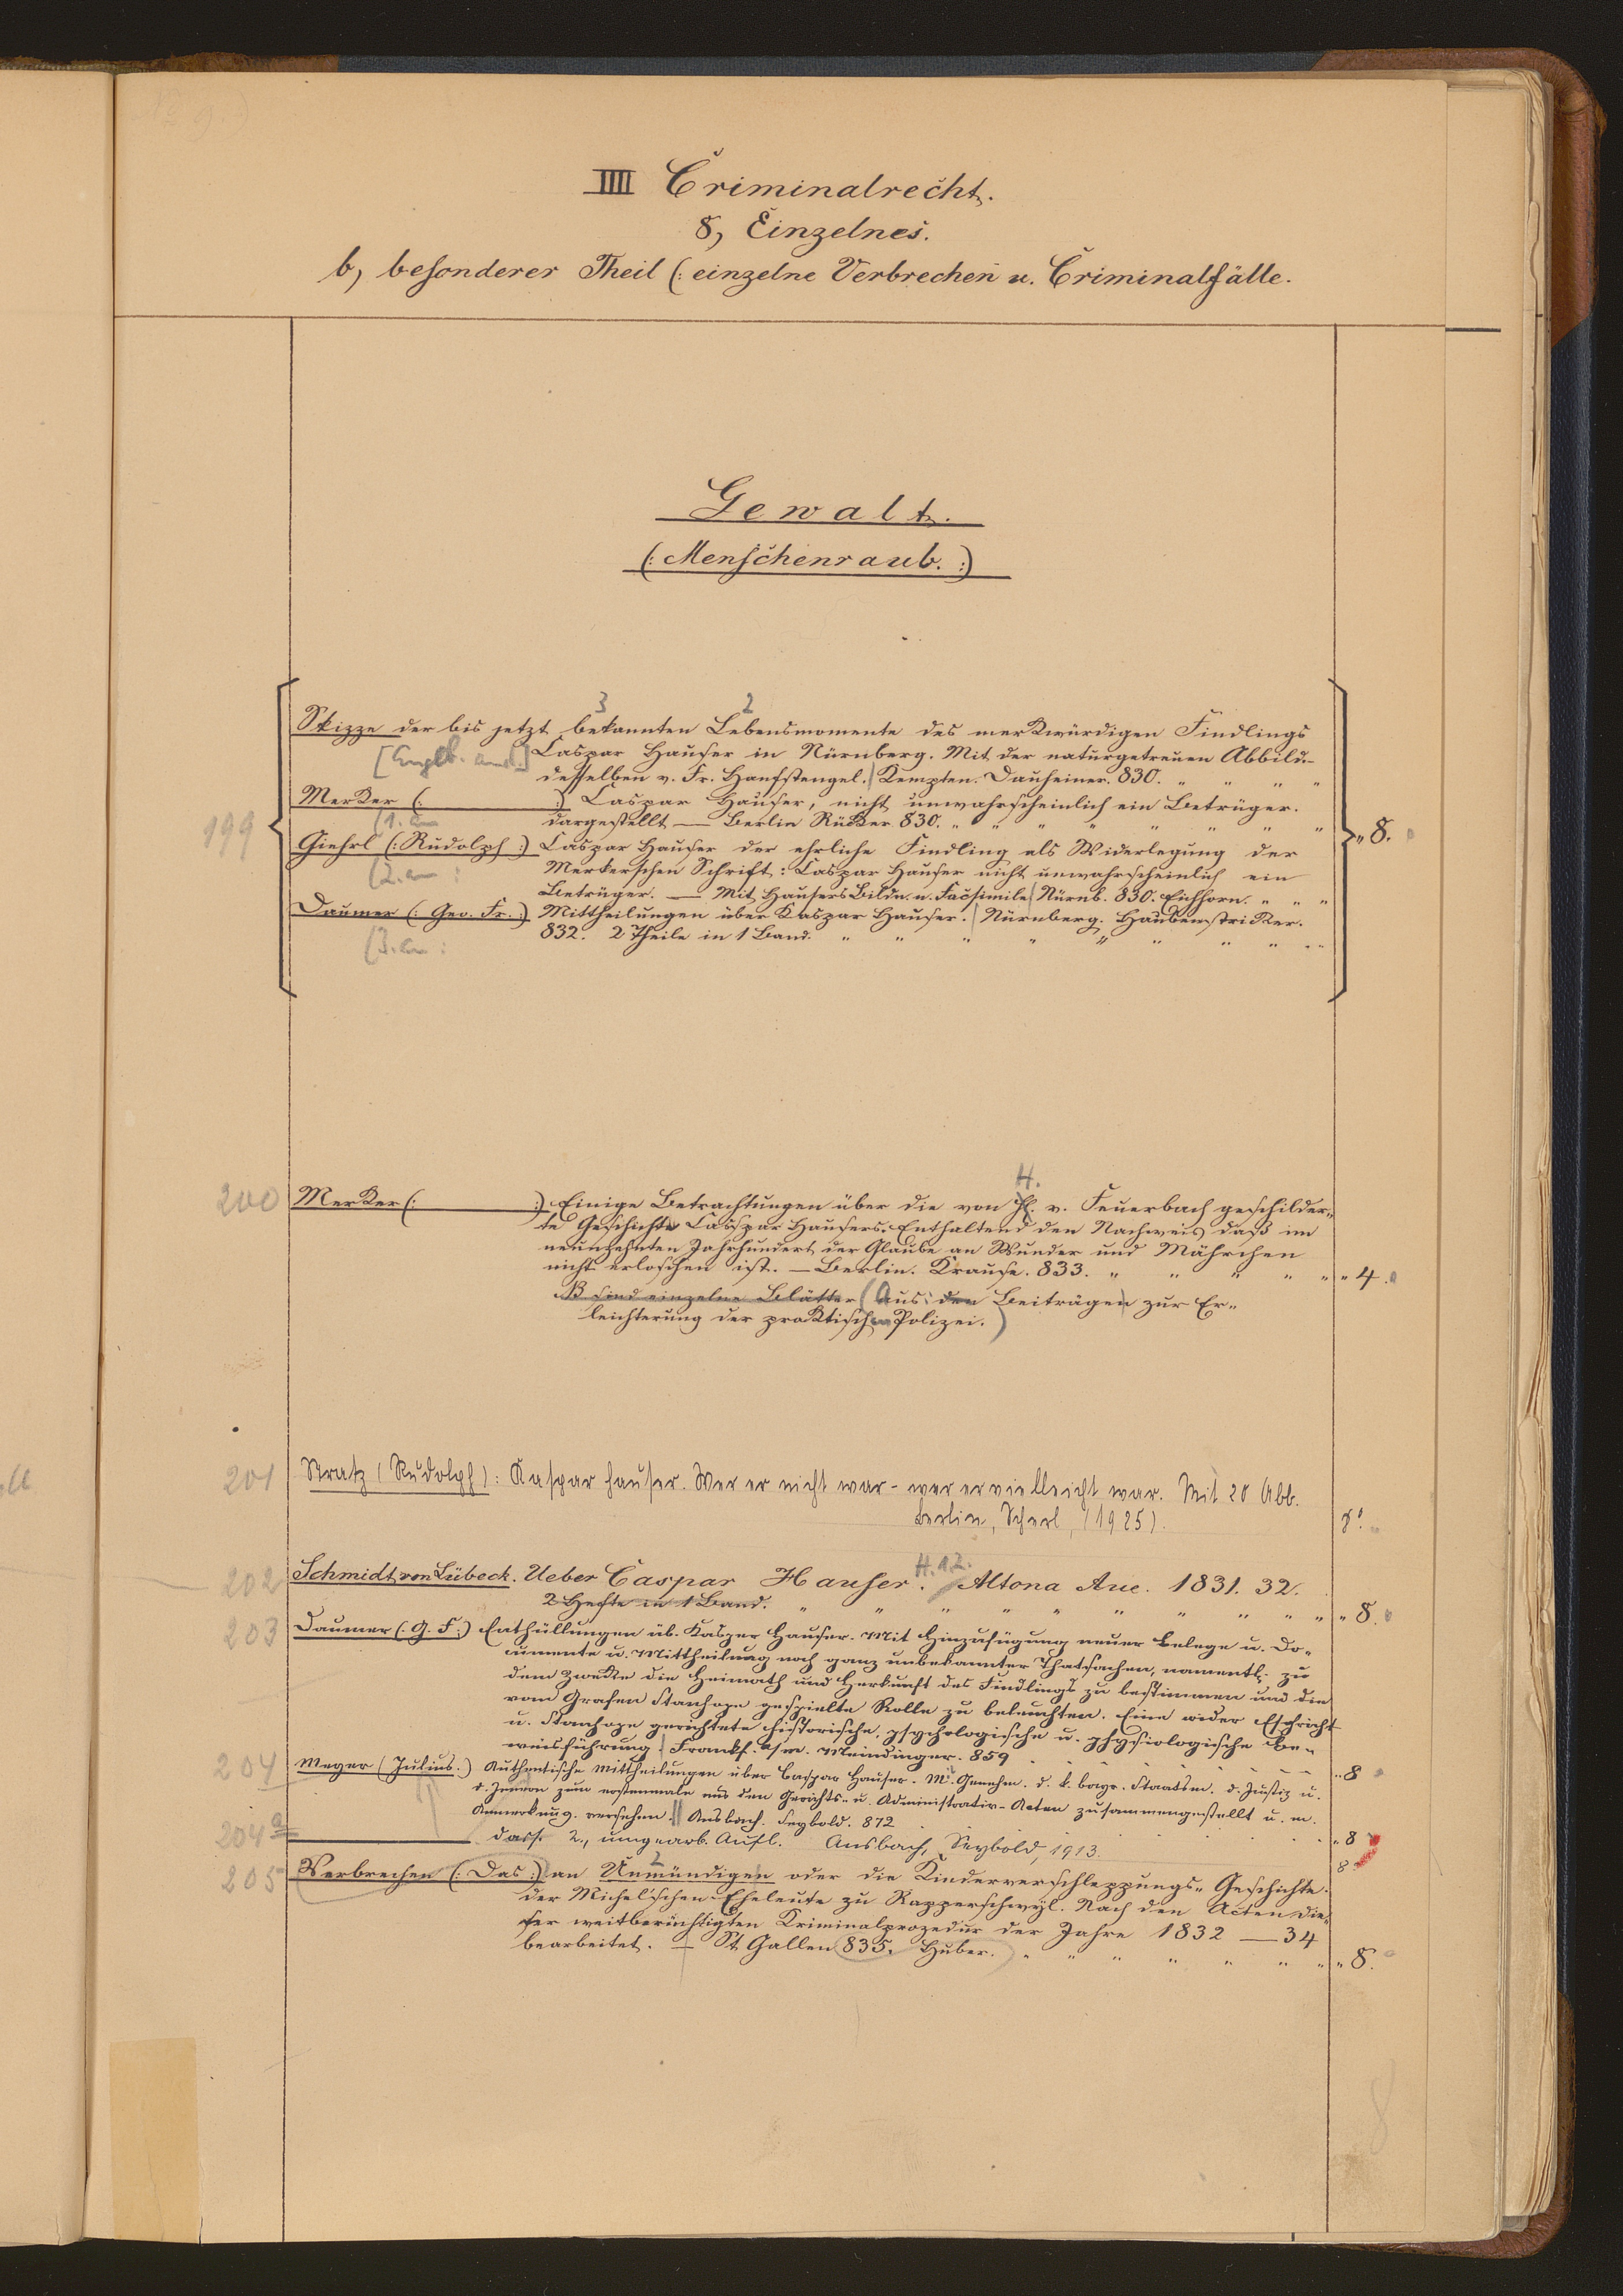 IIII Criminalrecht.
8, Einzelnes.
b, besonderer Theil (: einzelne Verbrechen u. Criminalfälle.
Gewalt.
(: Menschenraub. :)
3 2
Skizze der bis jetzt bekannten Lebensmomente des merkwürdigen Findlings
Caspar Hauser in Nürnberg. Mit der naturgetreuen Abbild.
desselben v. Fr. Hanfstengel. Kempten. Dannheimer. 830. " " " "
Merker (: :) Caspar Hauser, nicht unwahrscheinlich ein Betrüger.
199 dargestellt — Berlin Rücker 830. " " " " " " " " " 8.
Giehrl (: Rudolph :) Caspar Hauser der ehrliche Findling als Widerlegung der
Merkerschen Schrift: Caspar Hauser nicht unwahrscheinlich ein
Betrüger. — Mit Hausers Bildn. u. Facsimile Nürnb. 830. Eichhorn. " " "
Daumer (: Geo. Fr. :) Mittheilungen über Kaspar Hauser. Nürnberg. Haubenstricker.
832. 2 Theile in 1 Band. " " " " " " " " " "
H.
200 Merker (: :) Einige Betrachtungen über die von v. Feuerbach geschilder-
te Geschichte Caspar Hausers. Enthaltend den Nachweis daß im
neunzehnten Jahrhundert der Glaube an Wunder und Mährchen
nicht erloschen ist. — Berlin. Krause. 833. " " " " " " 4.
NB sind einzelne Blätter (Aus den Beiträgen zur Er-
leichterung der praktischen Polizei.)
201 Stratz (Rudolph): Kaspar Hauser. Wer er nicht war - wer er vielleicht war. Mit 20 Abb.
Berlin, Scherl, (1925). 8°.
202 Schmidt von Lübeck. Ueber Caspar Hauser. H. 1.2. Altona Aue. 1831. 32.
2 Hefte in 1 Band. " " " " " " " " " " " 8.
203 Daumer (: G. F. :) Enthüllungen üb. Kaspar Hauser. Mit Hinzufügung neuer Belege u. Do-
cumente u. Mittheilung noch ganz unbekannter Thatsachen, namentl. zu
dem Zwecke die Heimath und Herkunft des Findlings zu bestimmen und die
vom Grafen Stanhope gespielte Rolle zu beleuchten. Eine wider Eschricht
u. Stanhope gerichtete historische, psychologische u. physiologische Be-
weisführung. Frankf. a/m. Meindinger. 859 " 8
204 Meyer (Julius.) Authentische Mittheilungen über Caspar Hauser. M. Genehm. d. k. bayr. Staatsm. d. Justiz u.
d. Innern zum erstenmale aus den Gerichts- u. Administrativ-Acten zusammengestellt u. m.
Anmerkung. versehen. Ansbach. Seybold. 872 " 8
204a dass. 2., umgearb. Aufl. Ansbach, Seybold, 1913. 8
205 Verbrechen (: Das :) an Unmündigen oder die Kinderverschleppungs-Geschichte
der Michel'schen Eheleute zu Rapperschwyl. Nach den Acten die-
ser weitberüchtigten Kriminalprozedur der Jahre 1832 — 34
bearbeitet. — St. Gallen 835. Huber. " " " " " " " 8.